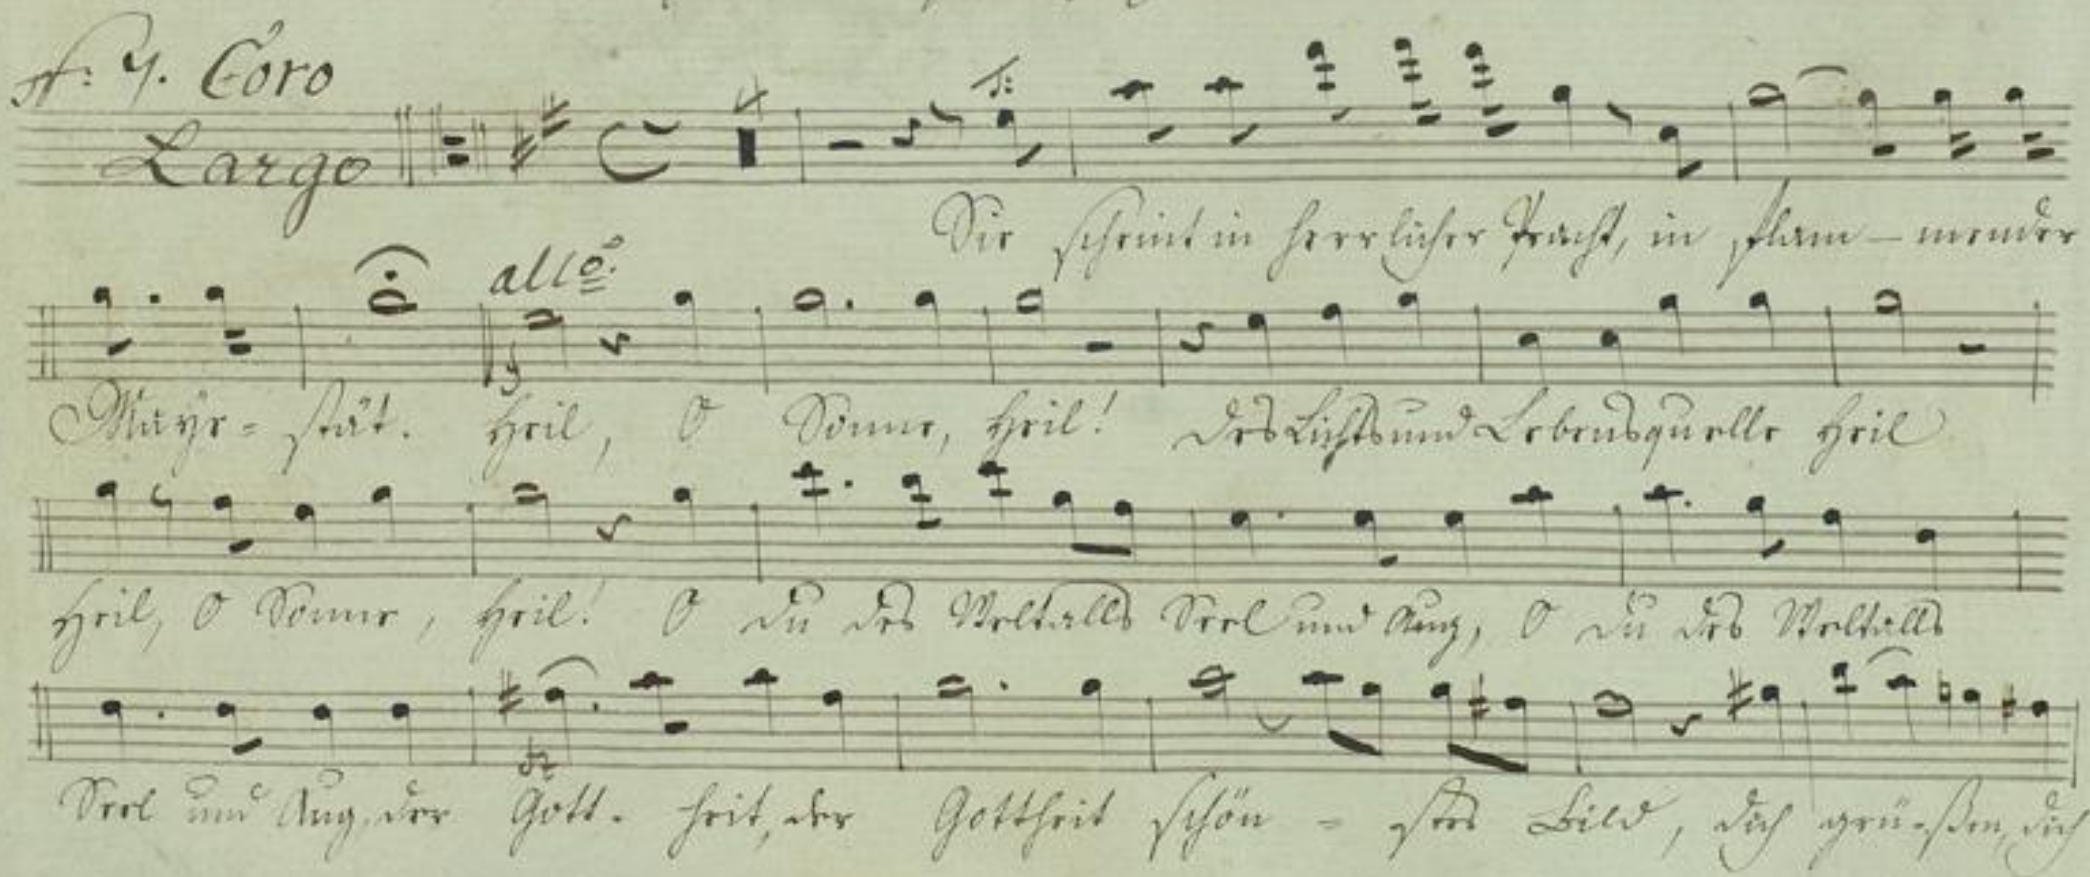 N: 7. Coro
Largo
T:
Sie scheint in herrlicher Pracht, in flam – mender
allo:
Maye- stät. Heil, O Sonne, Heil! des Lichts und Lebens quelle Heil
Heil, O Sonne, Heil! O du des Weltalls Seel und Aug, O du des Weltalls
Seel und Aug, der Gott- heit, der Gottheit schön - stes Bild, dich grü-ßen, dich